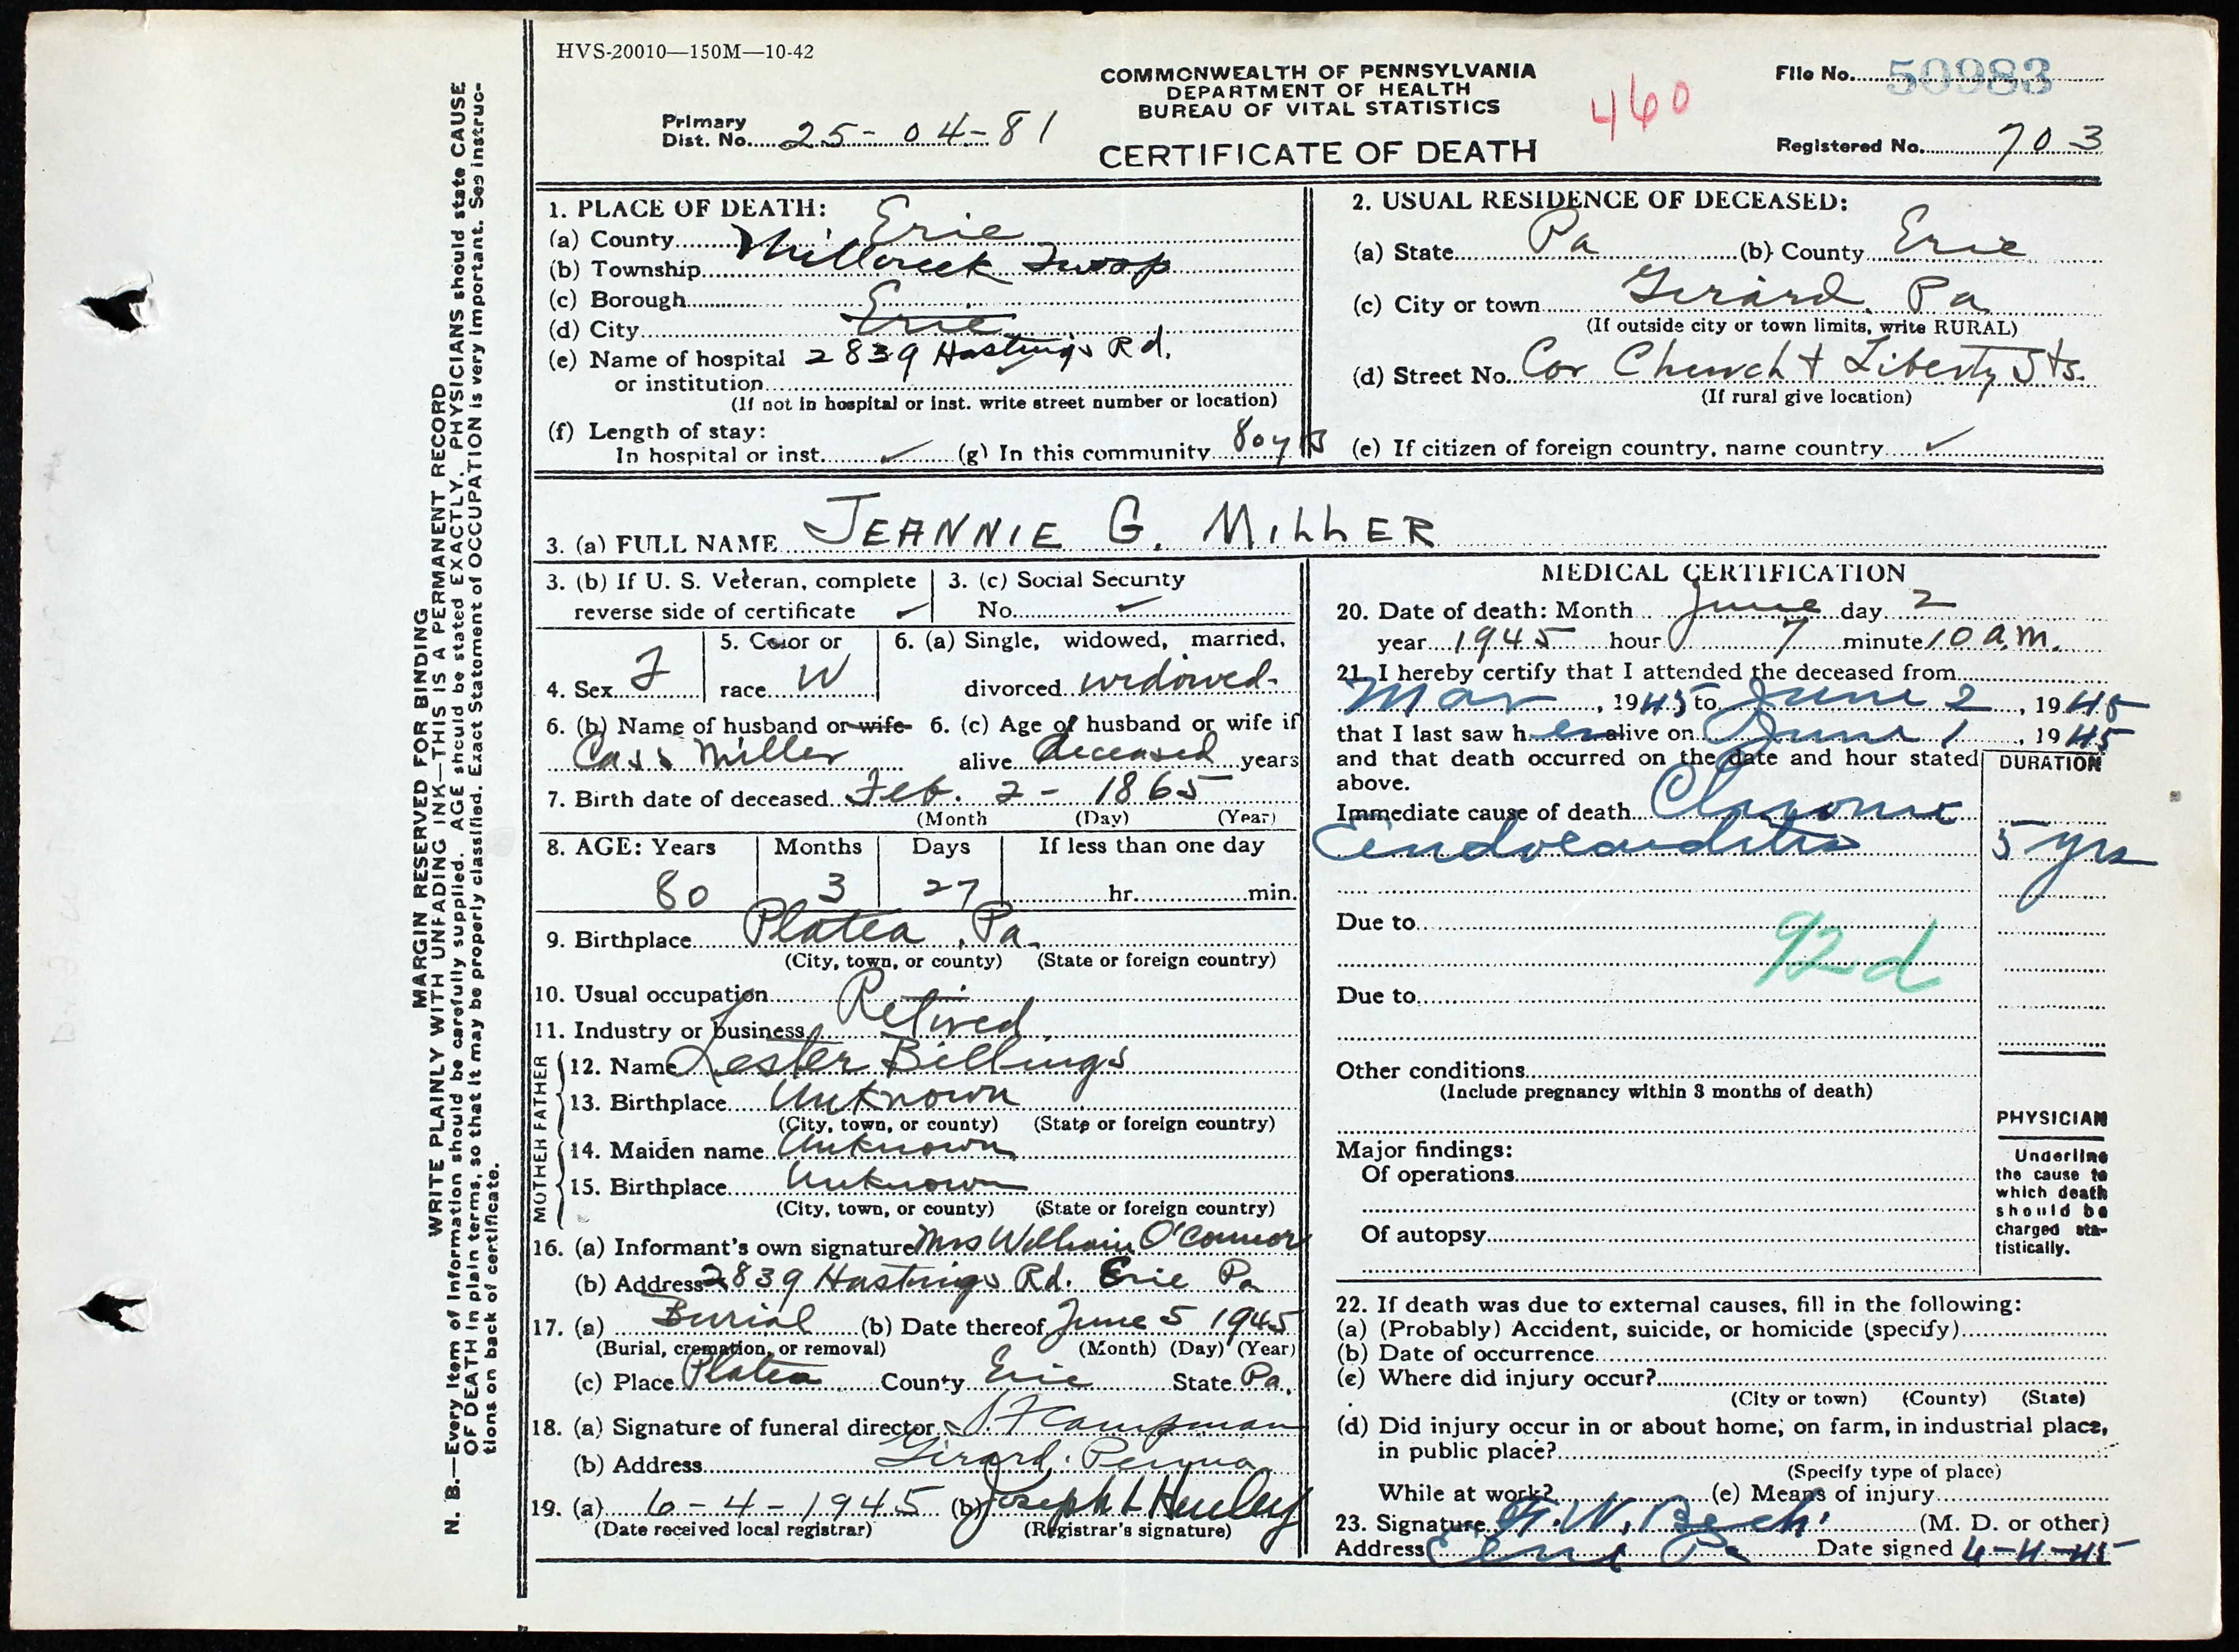 HVS-20010—150M—10-42
COMMONWEALTH OF PENNSYLVANIA
DEPARTMENT OF HEALTH
BUREAU OF VITAL STATISTICS
CERTIFICATE OF DEATH
460
File No. 50983
Primary
Dist. No. 25-04-81
Registered No. 703
1. PLACE OF DEATH:
(a) County Erie
(b) Township Millcreek Twsp
(c) Borough
(d) City Erie
(e) Name of hospital 2839 Hastings Rd.
or institution
(If not in hospital or inst. write street number or location)
(f) Length of stay:
In hospital or inst. ✓ (g) In this community 80 yrs
2. USUAL RESIDENCE OF DECEASED:
(a) State Pa (b) County Erie
(c) City or town Girard, Pa
(If outside city or town limits, write RURAL)
(d) Street No. Cor Church + Liberty Sts.
(If rural give location)
(e) If citizen of foreign country, name country ✓
3. (a) FULL NAME JEANNIE G. MILLER
3. (b) If U. S. Veteran, complete
reverse side of certificate ✓
3. (c) Social Security
No. ✓
4. Sex F
5. Color or
race W
6. (a) Single, widowed, married,
divorced widowed
6. (b) Name of husband or wife
Cass Miller
6. (c) Age of husband or wife if
alive deceased years
7. Birth date of deceased Feb. 2 - 1865
(Month (Day) (Year)
8. AGE: Years Months Days If less than one day
80 3 27 hr. min.
9. Birthplace Platea, Pa.
(City, town, or county) (State or foreign country)
10. Usual occupation
11. Industry or business Retired
FATHER
12. Name Lester Billings
13. Birthplace Unknown
(City, town, or county) (State or foreign country)
MOTHER
14. Maiden name Unknown
15. Birthplace Unknown
(City, town, or county) (State or foreign country)
16. (a) Informant's own signature Mrs William O'Connor
(b) Address 2839 Hastings Rd. Erie Pa
17. (a) Burial (b) Date thereof June 5 1945
(Burial, cremation, or removal) (Month) (Day) (Year)
(c) Place Platea County Erie State Pa.
18. (a) Signature of funeral director Campman
(b) Address Girard, Penna
19. (a) 6-4-1945 (b) Joseph L
(Date received local registrar) (Registrar's signature)
MEDICAL CERTIFICATION
20. Date of death: Month June day 2
year 1945 hour 7 minute 10 a.m.
21. I hereby certify that I attended the deceased from
Mar, 1945 to June 2, 1945
that I last saw her alive on June 1, 1945
and that death occurred on the date and hour stated
above.
DURATION
Immediate cause of death Chronic
Endocarditis 5 yrs
Due to
92d
Due to
Other conditions
(Include pregnancy within 3 months of death)
PHYSICIAN
Underline
the cause to
which death
should be
charged sta-
tistically.
Major findings:
Of operations
Of autopsy
22. If death was due to external causes, fill in the following:
(a) (Probably) Accident, suicide, or homicide (specify)
(b) Date of occurrence
(c) Where did injury occur?
(City or town) (County) (State)
(d) Did injury occur in or about home, on farm, in industrial place,
in public place?
(Specify type of place)
While at work? (e) Means of injury
23. Signature (M. D. or other)
Address Erie Pa Date signed 6-4-45
MARGIN RESERVED FOR BINDING
WRITE PLAINLY WITH UNFADING INK—THIS IS A PERMANENT RECORD
N. B.—Every item of information should be carefully supplied. AGE should be stated EXACTLY. PHYSICIANS should state CAUSE
OF DEATH in plain terms, so that it may be properly classified. Exact Statement of OCCUPATION is very important. See instruc-
tions on back of certificate.